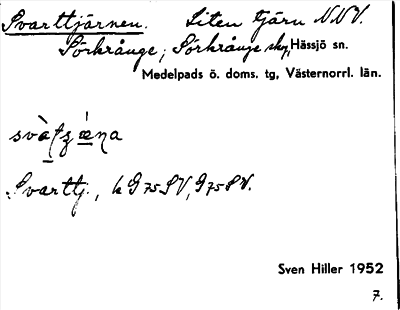 Svarttjärnen. Liten tjärn NNV.
Sörkrånge; Sörkrånge skg, Hässjö sn.
Medelpads ö. doms. tg, Västernorrl. län.
Svarttj., h G 75 SV, G 75 SV.
Sven Hiller 1952
7.